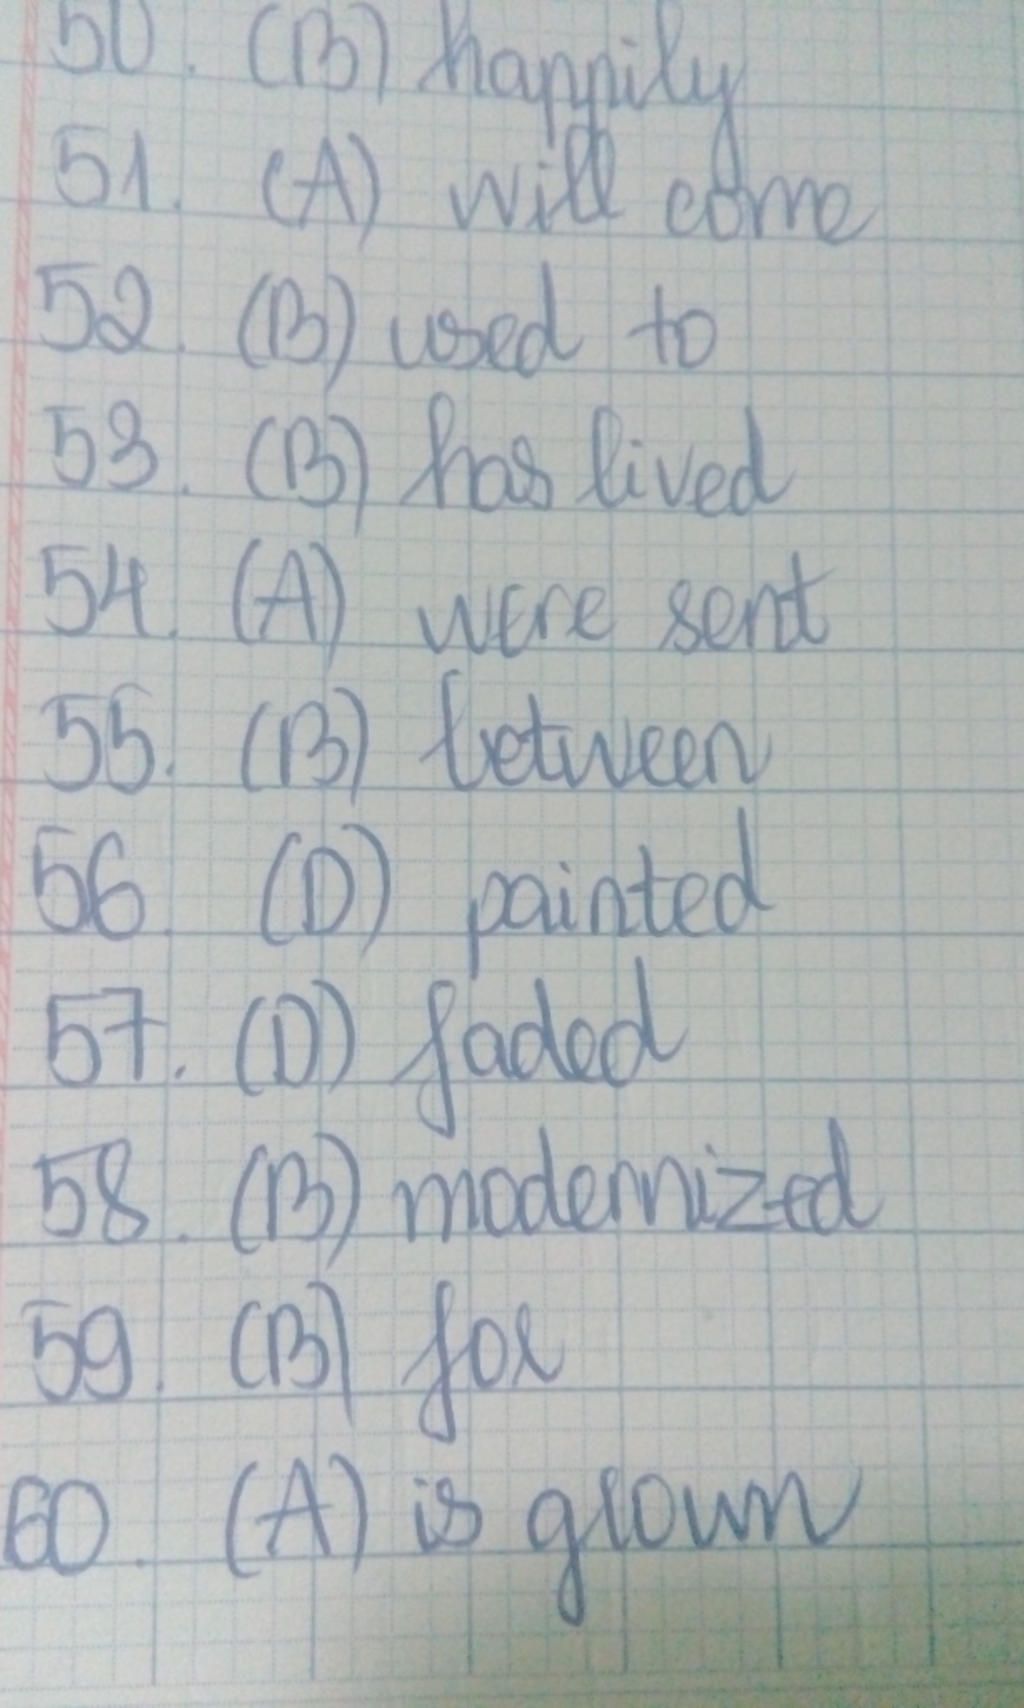 50. (B) happily
51. (A) will come
52. (B) used to
53. (B) has lived
54. (A) were sent
55. (B) between
56. (D) painted
57. (D) faded
58. (B) modernized
59. (B) for
60. (A) is grown